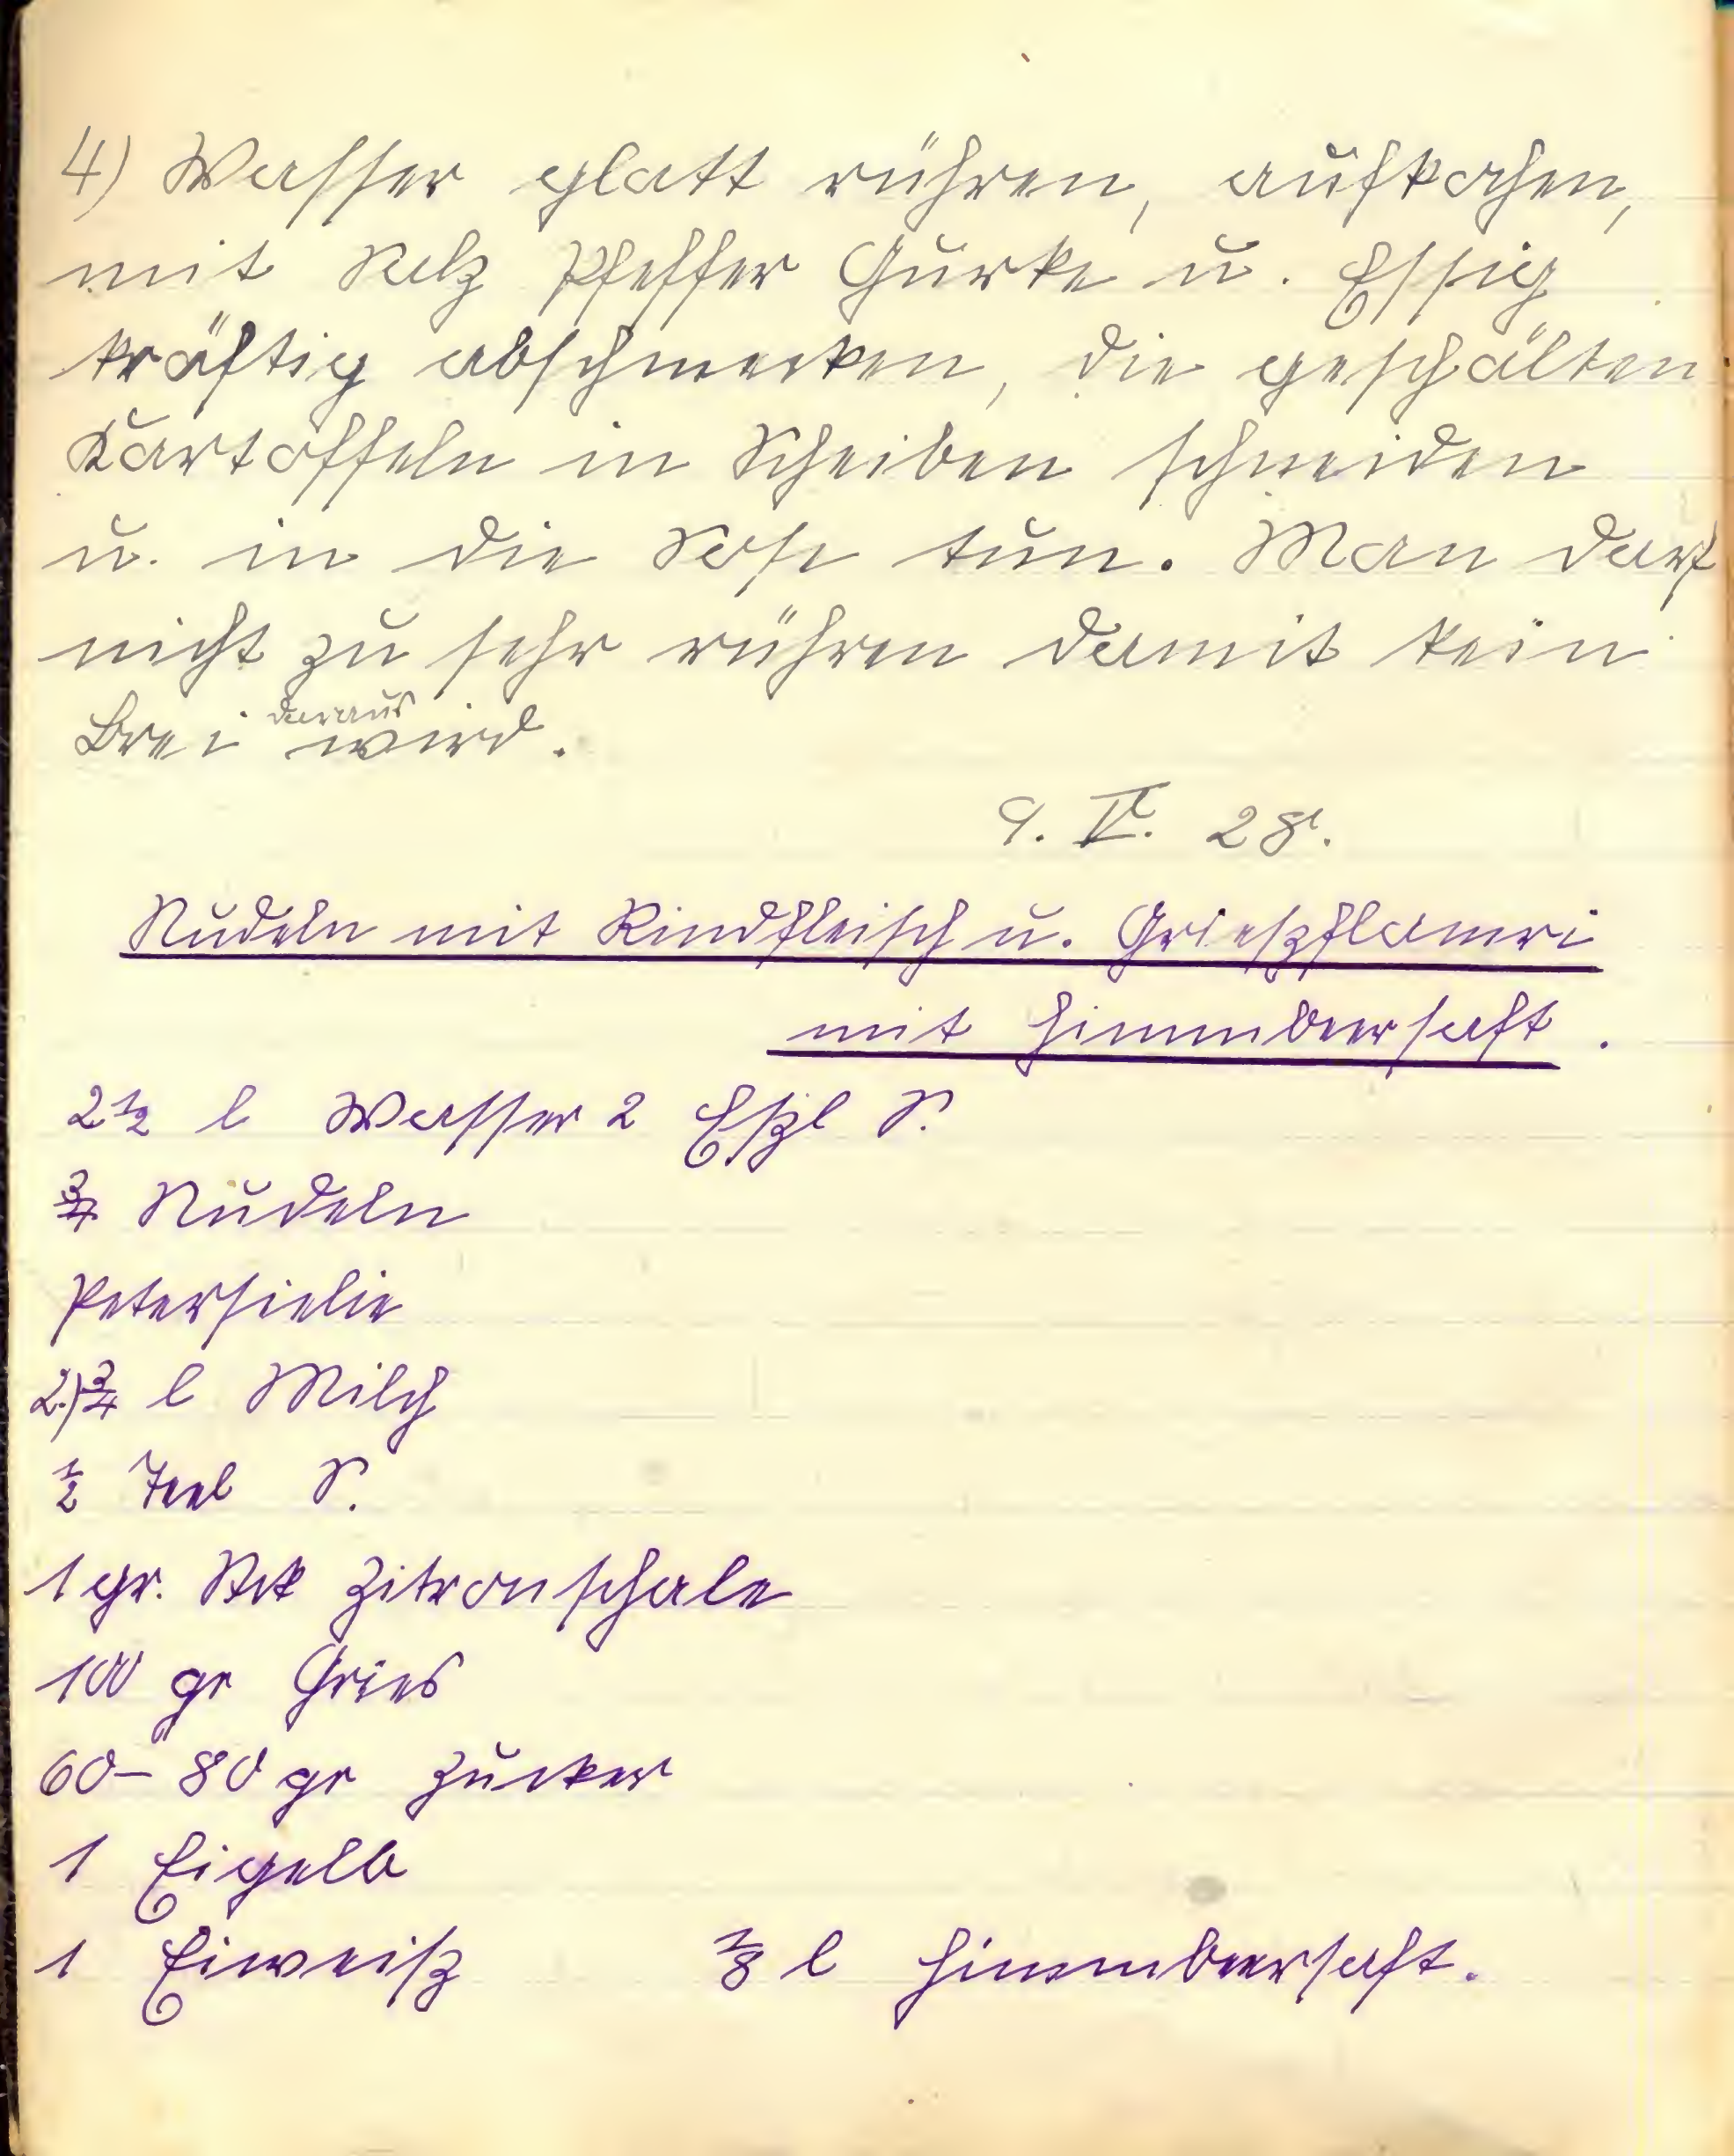 4) Wasser glatt rühren, aufkochen,
mit Salz Pfeffer Gurke u. Essig
kräftig abschmecken, die geschälten
Kartoffeln in Scheiben schneiden
u. in die Sose tun. Man darf
nicht zu sehr rühren damit kein
Brei daraus wird.
9. V. 28.
Nudeln mit Rindfleisch u. Grießflameri
mit Himmbeersaft.
2 1/2 l Wasser 2 Eßl S.
3/4 Nudeln
Petersielie
2) 3/4 l Milch
1/2 Teel S.
1 gr. Stck Zitronschale
100 gr Gries
60–80 gr Zucker
1 Eigelb
1 Eiweiß 1/8 l Himmbeersaft.